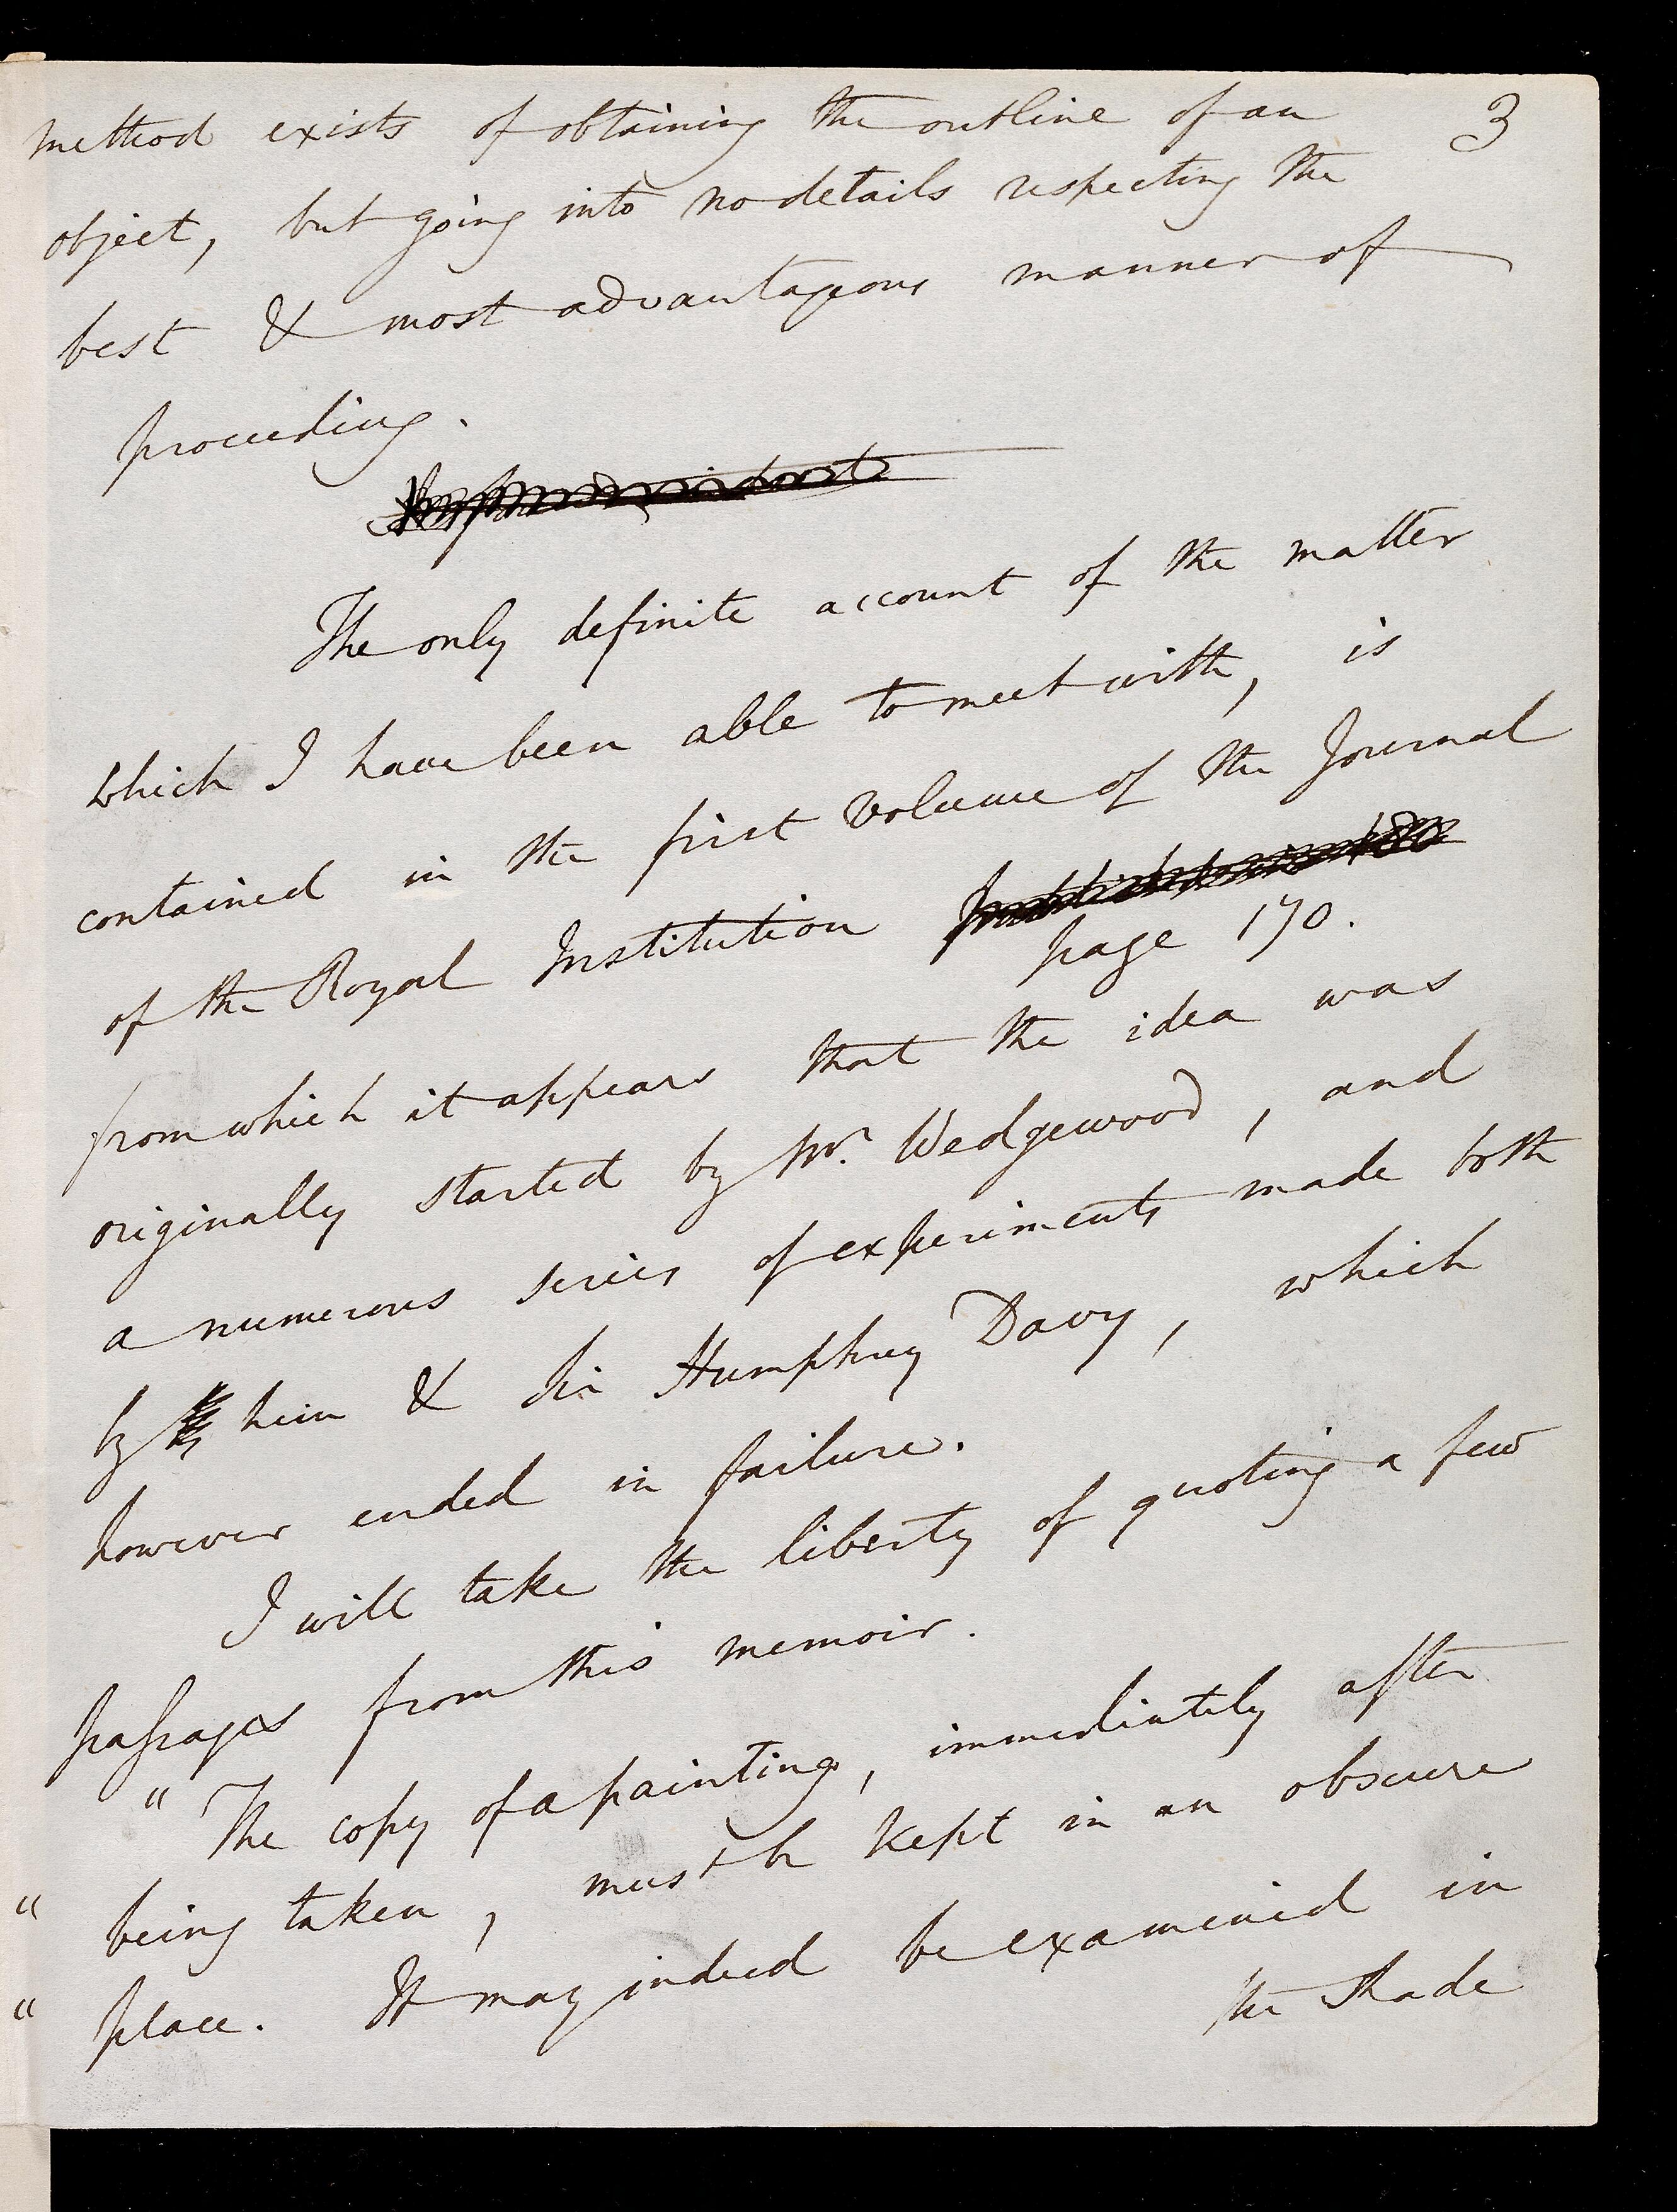 3
method exists of obtaining the outline of an
object, but going into no details respecting the
best & most advantageous manner of
proceeding.
The only definite account of the matter
which I have been able to meet with, is
contained in the first volume of the Journal
of the Royal Institution
page 170.
from which it appears that the idea was
originally started by Mr. Wedgewood, and
a numerous series of experiments made both
by him & Sir Humphrey Davy, which
however ended in failure.
I will take the liberty of quoting a few
passages from this memoir.
" The copy of a painting, immediately after
" being taken, must be kept in an obscure
" place. It may indeed be examined in
the shade